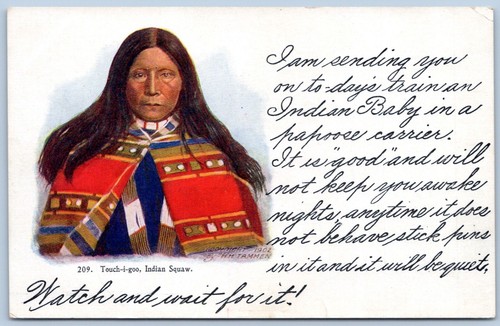 I am sending you
on to-day's train an
Indian Baby in a
papoose carrier.
It is "good" and will
not keep you awake
nights, anytime it does
not behave stick pins
in it and it will be quiet.
Watch and wait for it!
1902
H.H. TAMMEN
209. Touch-i-goo, Indian Squaw.